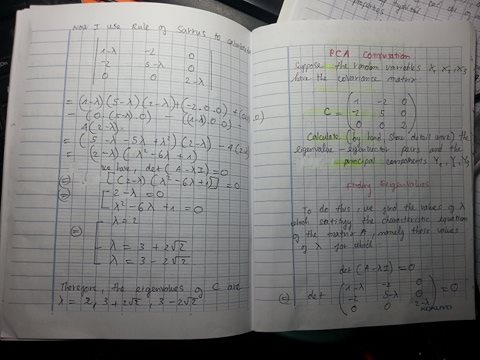 Now I use Rule of Sarrus to
| 1-λ -2 0 |
| -2 5-λ 0 |
| 0 0 2-λ |
= (1-λ)(5-λ)(2-λ) + (-2.0.0) +
- (0.(5-λ).0) - ((1-λ).0.0) -
4(2-λ)
= (5-λ-5λ+λ²)(2-λ) - 4(2-λ)
= (2-λ)(λ²-6λ+1)
we have, det(A-λI) = 0
⇔ [(2-λ)(λ²-6λ+1)] = 0
⇔ [ 2-λ = 0
λ²-6λ+1 = 0
⇔ [ λ = 2
λ = 3+2√2
λ = 3-2√2
Therefore, the eigenvalues of C are
λ = 2, 3+2√2, 3-2√2
PCA Computation
Suppose the random variables X₁ X₂ X₃
have the covariance matrix
C = ( 1 -2 0
-2 5 0
0 0 2 )
Calculate (by hand, show details) the
eigenvalue-eigenvector pairs and the
principal components Y₁, Y₂, Y₃
Finding Eigenvalues
To do this we find the values of λ
which satisfy the characteristic equation
of the matrix A, namely those values
of λ for which
det(A-λI) = 0
⇔ det ( 1-λ -2 0
-2 5-λ 0
0 0 2-λ ) = 0
KOKUYO